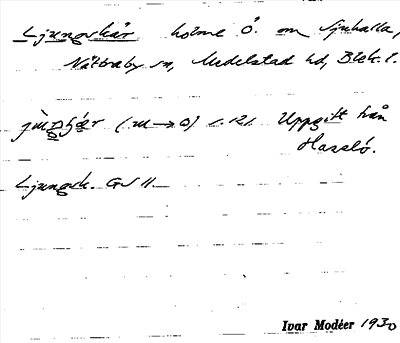 Ljungskär holme Ö. om Sjuhalla,
Nättraby sn, Medelstad hd, Blek. l.
(m→o) 1.12. Uppgift från
Hasslö.
Ljungsk. GS 11.
Ivar Modéer 1930